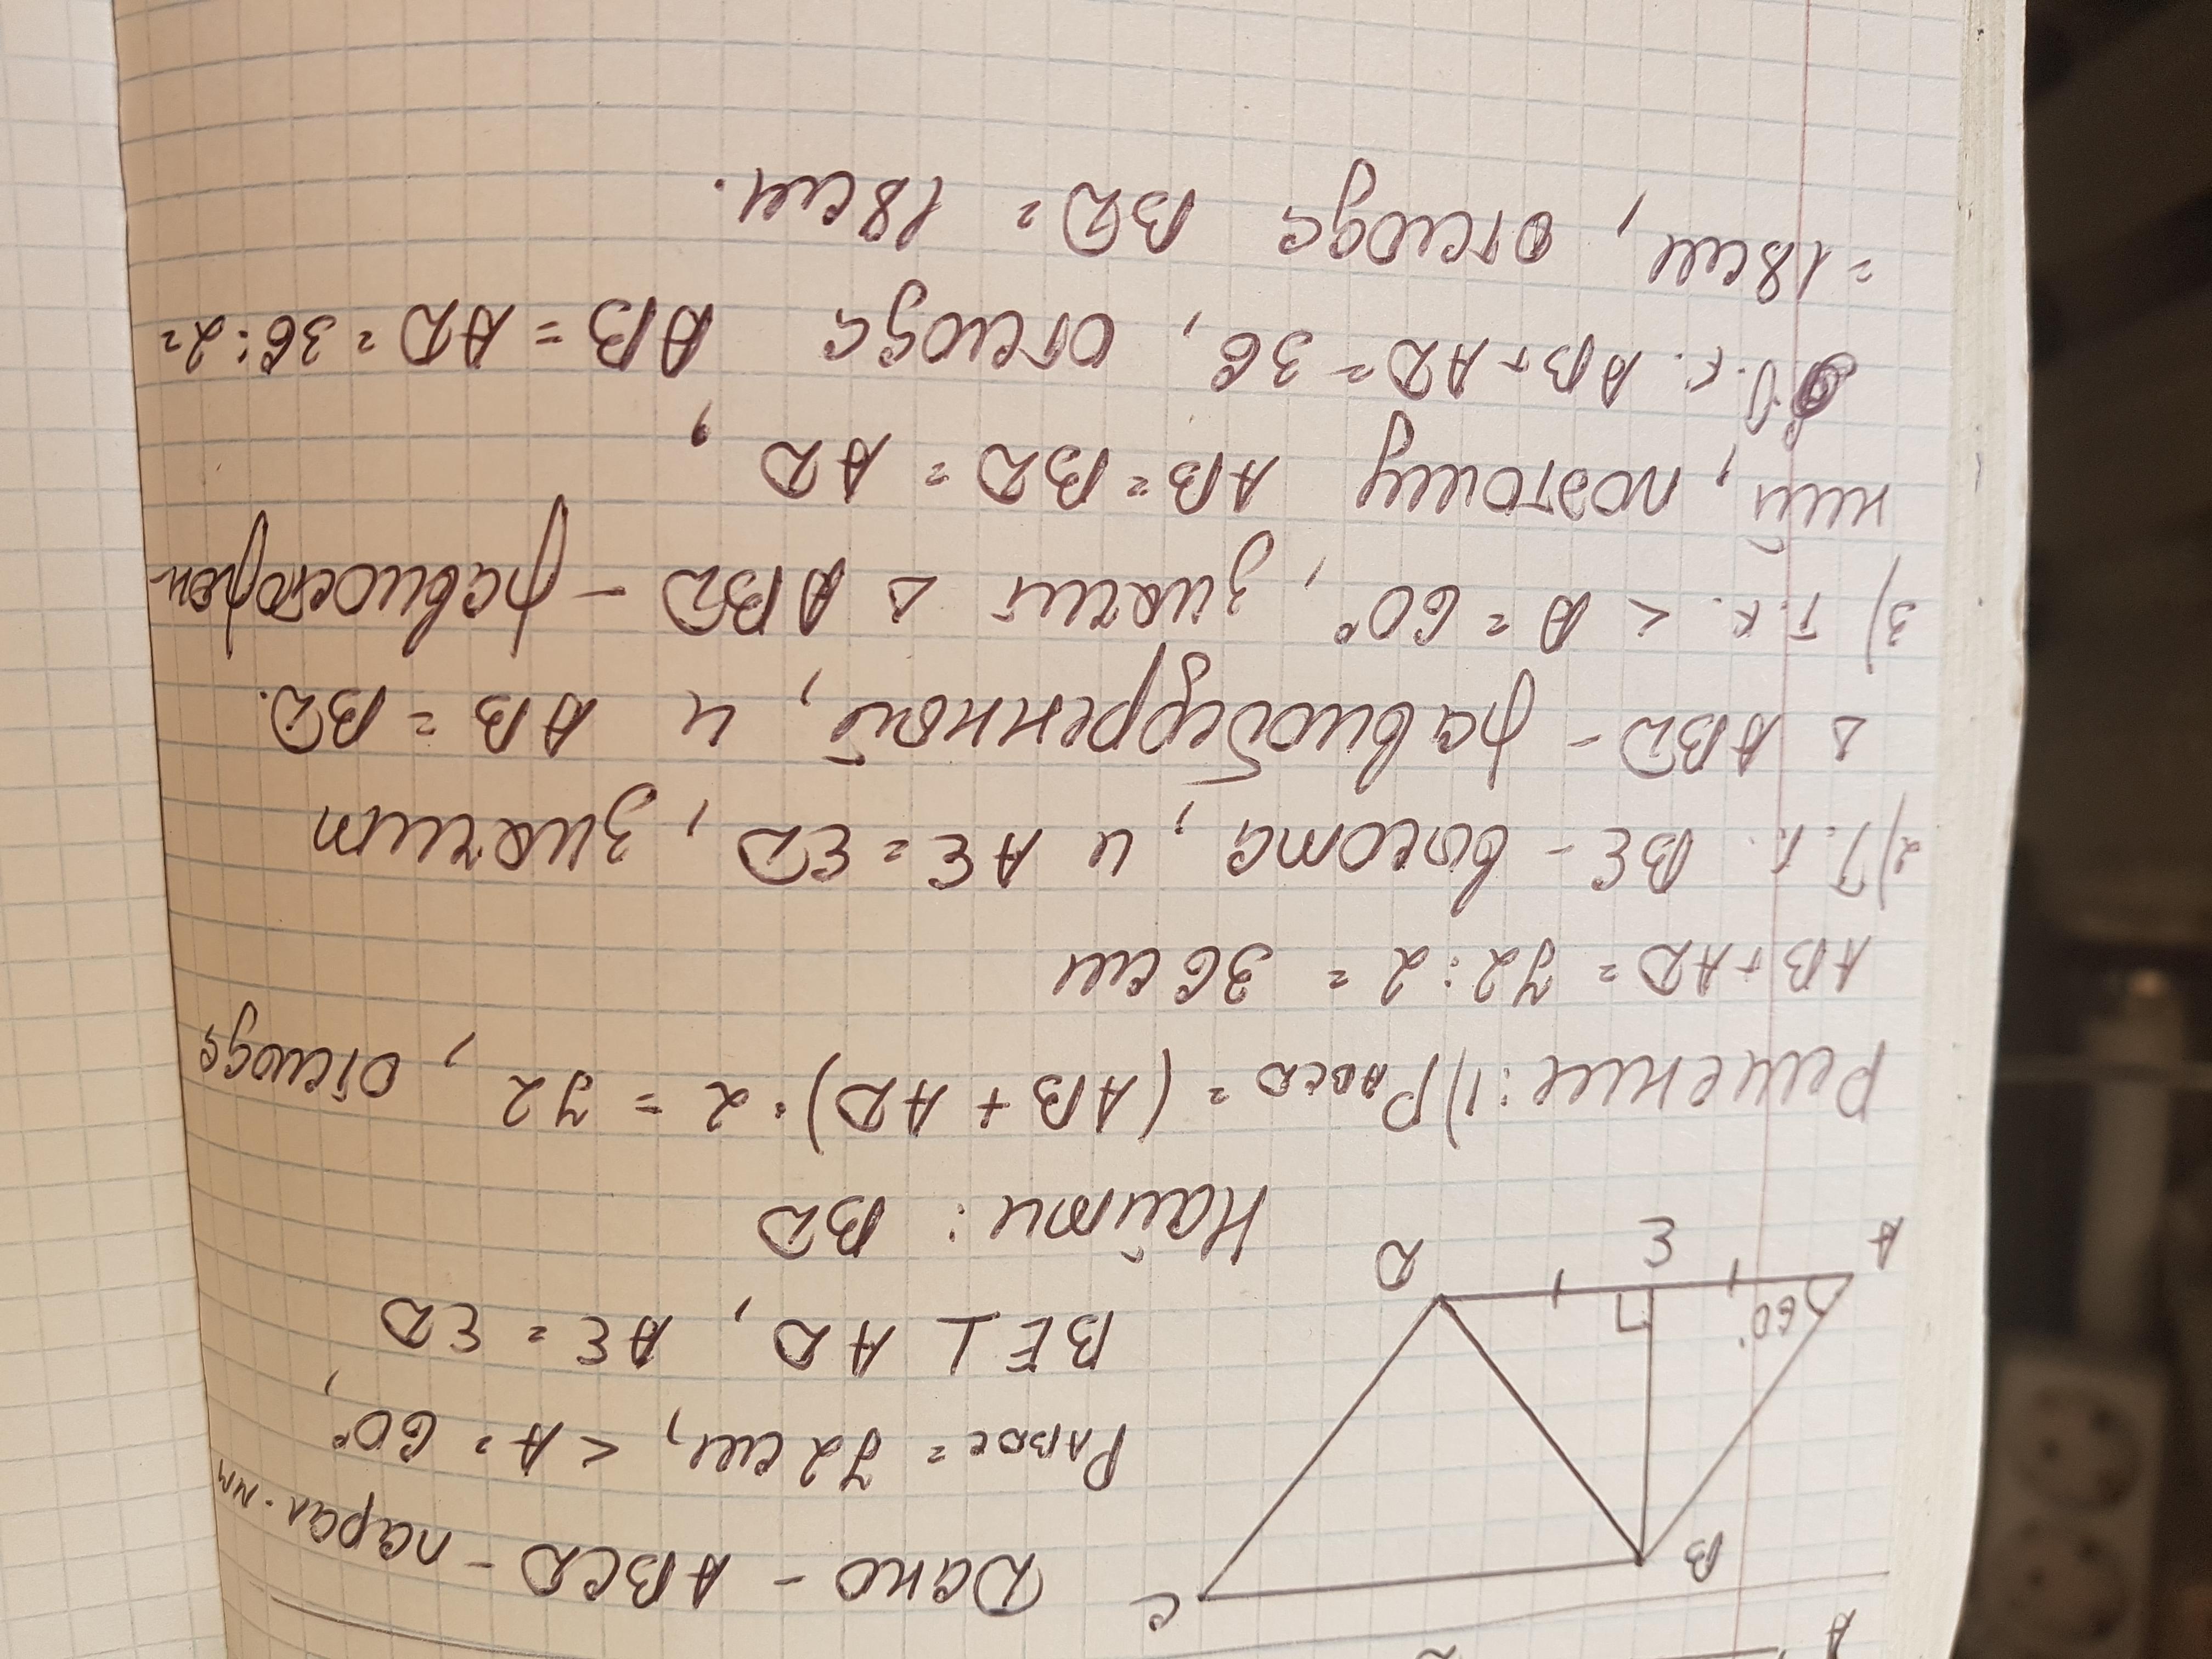 A
B
C
A
60°
E
D
Дано - ABCD - парал.мм
PABDC = 72см, < A = 60°,
BE ⊥ AD, AE = ED
Найти: BD
Решение: 1) PABCD = (AB + AD) · 2 = 72, отсюда
AB + AD = 72 : 2 = 36 см
2) Т. к. BE - высота, и AE = ED, значит
△ ABD - равнобедренной, и AB = BD.
3) т.к. < A = 60°, значит △ ABD - равносторон-
ний, поэтому AB = BD = AD,
Т.к. AB + AD = 36, отсюда AB = AD = 36 : 2 =
= 18 см, отсюда BD = 18 см.